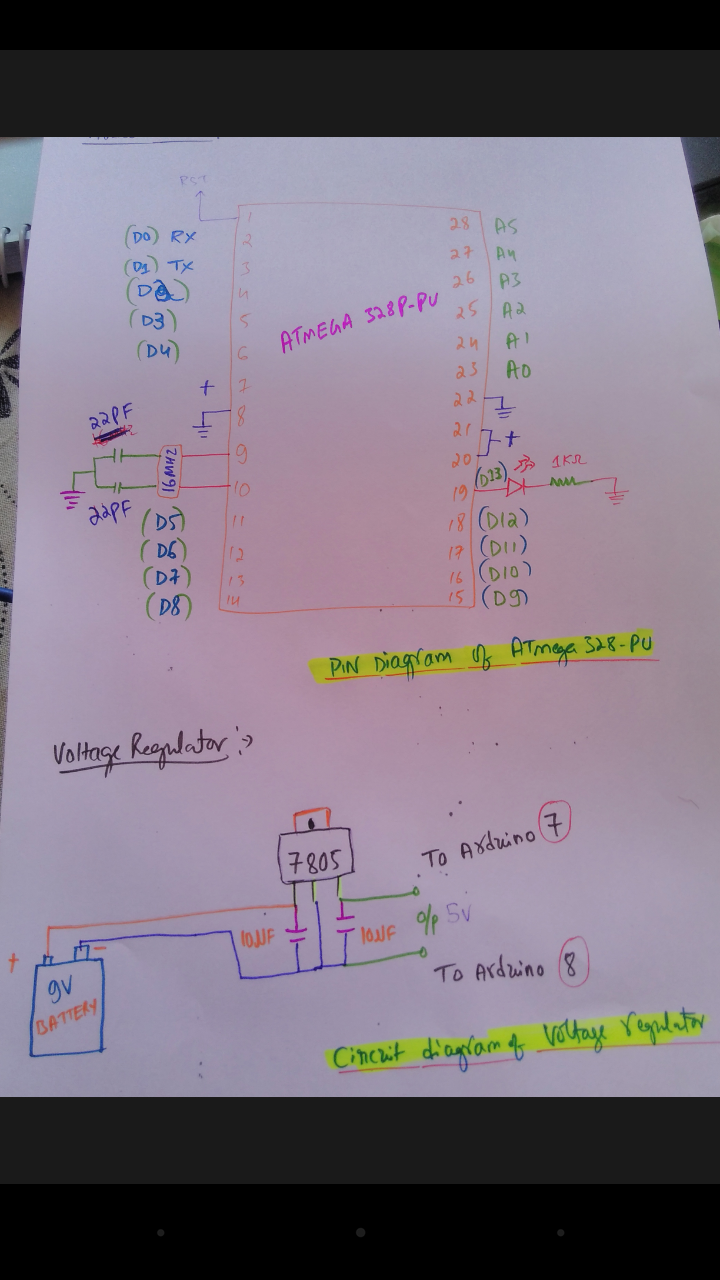 RST
(D0) RX
(D1) TX
(D2)
(D3)
(D4)
+
22PF
16MHZ
22PF
(D5)
(D6)
(D7)
(D8)
1
2
3
4
5
6
7
8
9
10
11
12
13
14
ATMEGA 328P-PU
28 A5
27 A4
26 A3
25 A2
24 A1
23 A0
22
21
+
20
19 (D13) 1KΩ
18 (D12)
17 (D11)
16 (D10)
15 (D9)
PIN Diagram of ATmega 328-PU
Voltage Regulator :->
7805
To Arduino 7
10μF
10μF
o/p 5V
To Arduino 8
+
-
9V
BATTERY
Circuit diagram of Voltage regulator